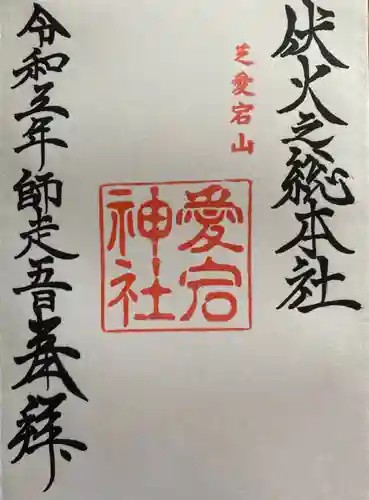 伏火之総本社
芝愛宕山
愛宕
神社
令和五年師走五日奉拝